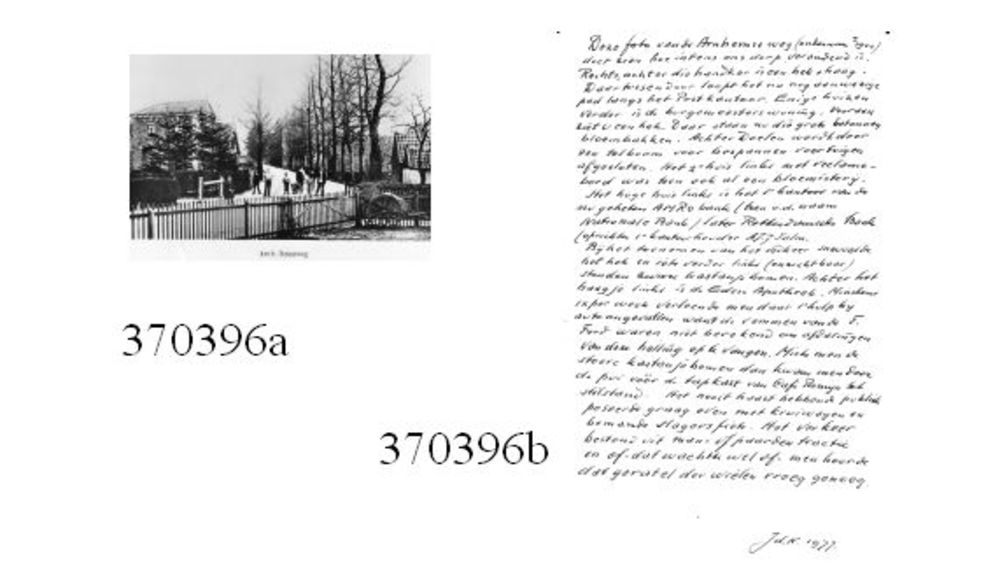 370396a
370396b
Deze foto van de Arnhemse weg
doet zien hoe intens ons dorp veranderd is.
Rechts, achter die handkar is een hek
Daartussendoor loopt het nu nog aanwezige
pad langs het Postkantoor. Enige huizen
verder is de burgemeesterswoning. Voor aan
ziet U een hek. Daar staan nu die grote betonnen
bloembakken. Achter Doelen wordt door
een tolboom voor bespannen voertuigen
afgesloten. Het 2e huis links met reclame-
bord was toen ook al een bloemisterij.
Het hoge huis links is het 1e kantoor van de
nu geheten AMRO bank (toen o.d. naam
Nationale Bank / later Rotterdamsche Bank
Bij het toenemen van het verkeer
het hek en iets verder links (onzichtbaar)
stonden zware kastanjebomen. Achter het
haagje links is de Eden Apotheek. Minstens
1x per week verleende men daar 1e hulp bij
autoongevallen want de remmen van de T.
Ford waren niet berekend om afdalingen
van deze helling op te vangen. Miste men de
stoere kastanjebomen dan kwam men door
de pui vóór de tapkast van Café tot
stilstand. Het nooit haast hebbende publiek
poseerde graag even met kruiwagen en
bemande slagersfiets. Het verkeer
bestond uit man- of paardentractie
en of- dat wachtte wel of- men hoorde
dat geratel der wielen vroeg genoeg.
1977.